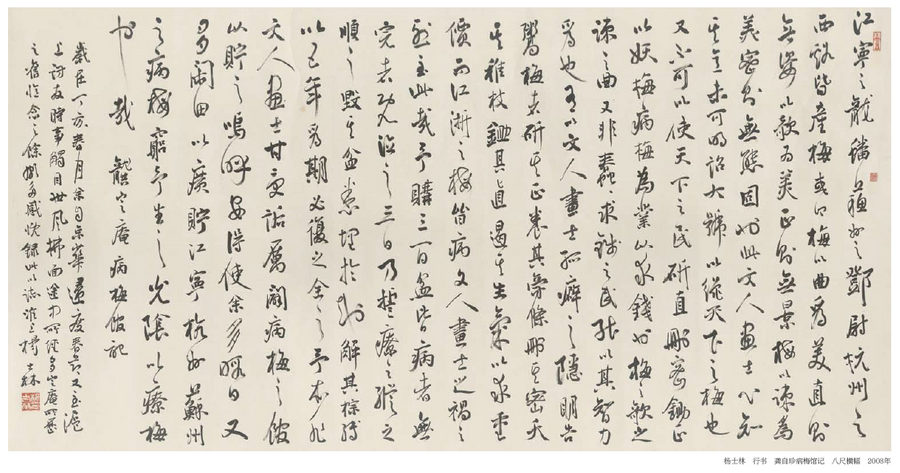 江寧之龍蟠蘇州之鄧尉杭州之
西谿皆產梅或曰梅以曲為美直則
無姿以欹為美正則無景梅以疎為
美密則無態固也此文人畫士心知
其意未可明詔大號以繩天下之梅也
又不可以使天下之民斫直刪密鋤正
以妖梅病梅為業以求錢也梅之欹之
疎之曲又非蠢蠢求錢之民能以其智力
為也有以文人畫士孤癖之隱明告
鬻梅者斫其正養其旁條刪其密夭
其稚枝鋤其直遏其生氣以求重
價而江浙之梅皆病文人畫士之禍之
烈至此哉予購三百盆皆病者無
完者既泣之三日乃誓療之縱之
順之毀其盆悉埋於地解其棕縛
以五年為期必復之全之予本非
文人畫士甘受詬厲闢病梅之館
以貯之嗚呼安得使余多暇日又
多閑田以廣貯江寧杭州蘇州
之病梅窮予生之光陰以療梅
也哉 龔定庵病梅館記
歲在丁亥春月余自京華還度春又至滬
上訪友時事觸目世風拂面途中所經多定庵所歷
之舊念之餘感慨錄此以誌淮上楊士林
杨士林 行书 龚自珍病梅馆记 八尺横幅 2008年